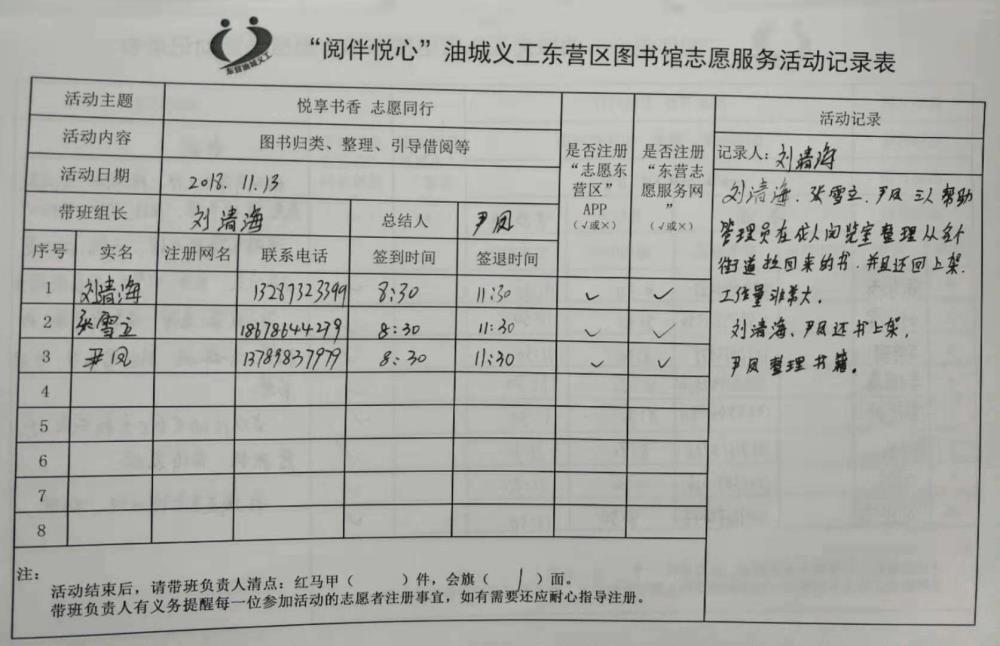 东营油城义工
“阅伴悦心”油城义工东营区图书馆志愿服务活动记录表
活动主题 悦享书香 志愿同行
活动内容 图书归类、整理、引导借阅等
活动日期 2018.11.13
带班组长 刘清海 总结人 尹凤
是否注册“志愿东营区”APP(√或×)
是否注册“东营志愿服务网”(√或×)
序号 实名 注册网名 联系电话 签到时间 签退时间
1 刘清海 13287323399 8:30 11:30 √ √
2 张雪立 18678644279 8:30 11:30 √ √
3 尹凤 13789837979 8:30 11:30 √ √
4
5
6
7
8
活动记录
记录人:刘清海
刘清海、张雪立、尹凤三人帮助
管理员在成人阅览室整理从各个
街道拉回来的书,并且还回上架,
工作量非常大。
刘清海、尹凤还书上架,
尹凤整理书籍。
注:
活动结束后,请带班负责人清点:红马甲( )件,会旗( 1 )面。
带班负责人有义务提醒每一位参加活动的志愿者注册事宜,如有需要还应耐心指导注册。